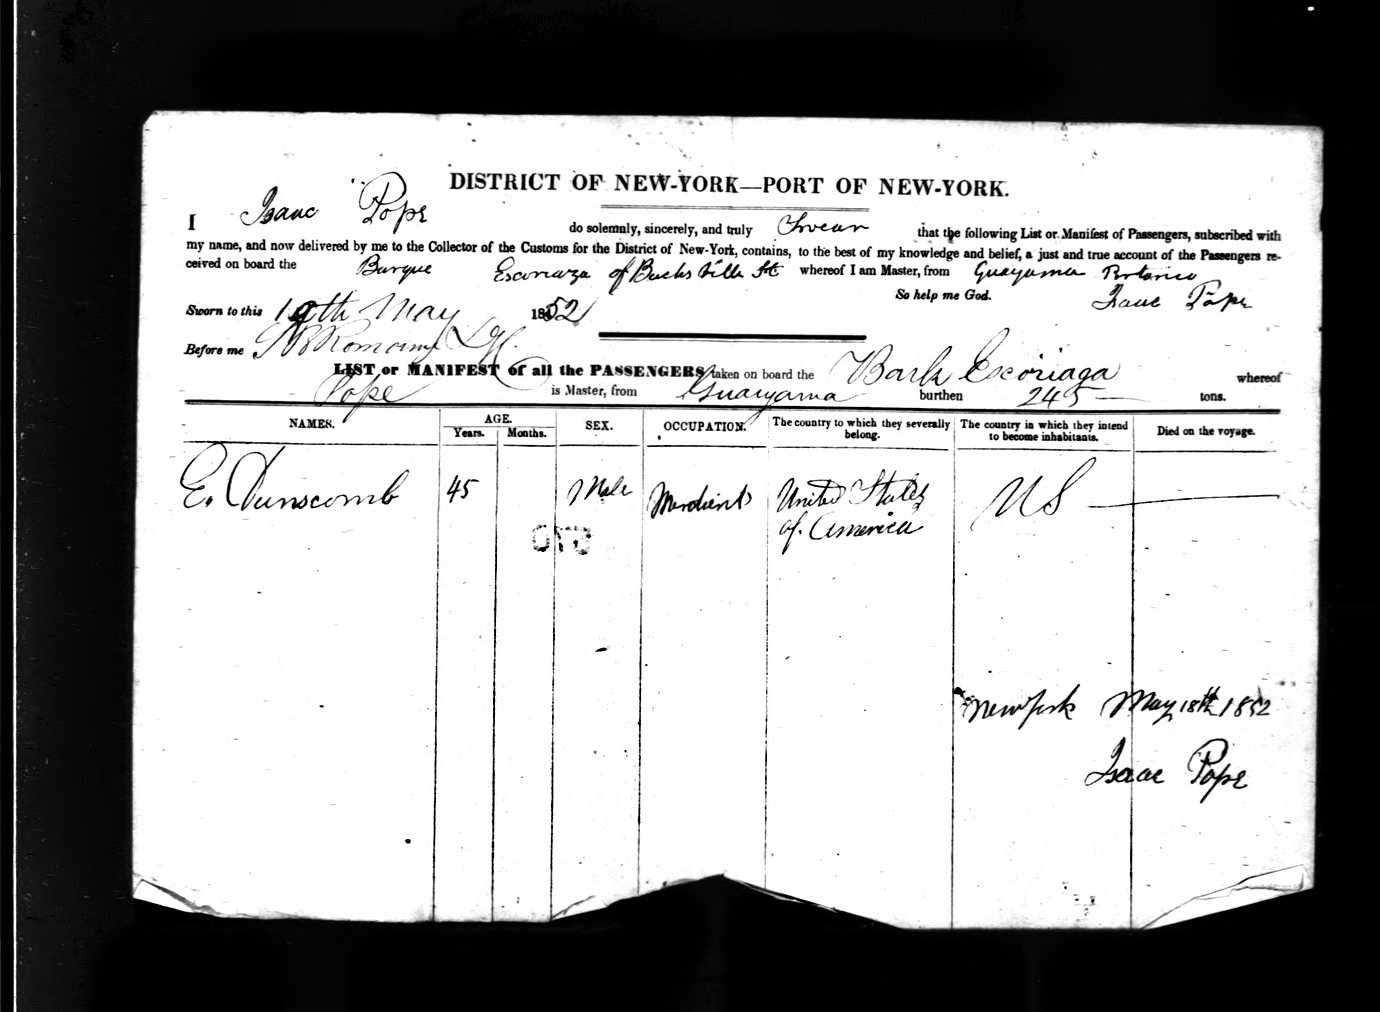 DISTRICT OF NEW-YORK—PORT OF NEW-YORK.
I Isaac Pope do solemnly, sincerely, and truly Swear that the following List or Manifest of Passengers, subscribed with
my name, and now delivered by me to the Collector of the Customs for the District of New-York, contains, to the best of my knowledge and belief, a just and true account of the Passengers re-
ceived on board the Barque Escoriaza of Bucksville whereof I am Master, from Guayama Portorico
So help me God. Isaac Pope
Sworn to this 18th May 1852
Before me
LIST or MANIFEST of all the PASSENGERS taken on board the Bark Escoriaga whereof
Pope is Master, from Guayama burthen 245 — tons.
NAMES. AGE. Years. Months. SEX. OCCUPATION. The country to which they severally belong. The country in which they intend to become inhabitants. Died on the voyage.
E. Dunscomb 45 Male Merchant United States of America US —
New York May 18th 1852
Isaac Pope